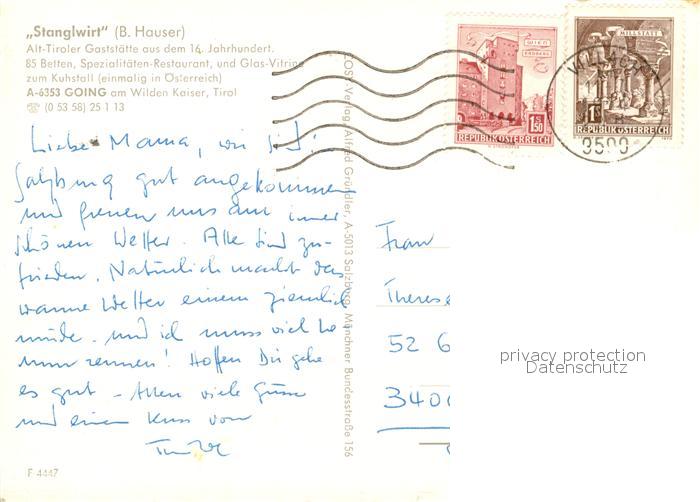 „Stanglwirt" (B. Hauser)
Alt-Tiroler Gaststätte aus dem 16. Jahrhundert.
85 Betten, Spezialitäten-Restaurant, und Glas-Vitrine
zum Kuhstall (einmalig in Österreich)
A-6353 GOING am Wilden Kaiser, Tirol
☎ (0 53 58) 25 1 13
Liebe Mama, wir sind in
Salzburg gut angekommen
und freuen uns am immer
schönen Wetter. Alle sind zu-
frieden. Natürlich macht das
warme Wetter einen ziemlich
müde. und ich muss viel he
rum rennen! Hoffen Dir gehe
es gut - Allen viele Grüsse
und einen Kuss von
F 4447
COSY-Verlag Alfred Gründler, A-5013 Salzburg, Münchner Bundesstraße 156
WIEN
ERDBERG
1S50
REPUBLIK ÖSTERREICH
MILLSTATT
1S
REPUBLIK ÖSTERREICH
Frau
Therese
52 6
340
privacy protection
Datenschutz